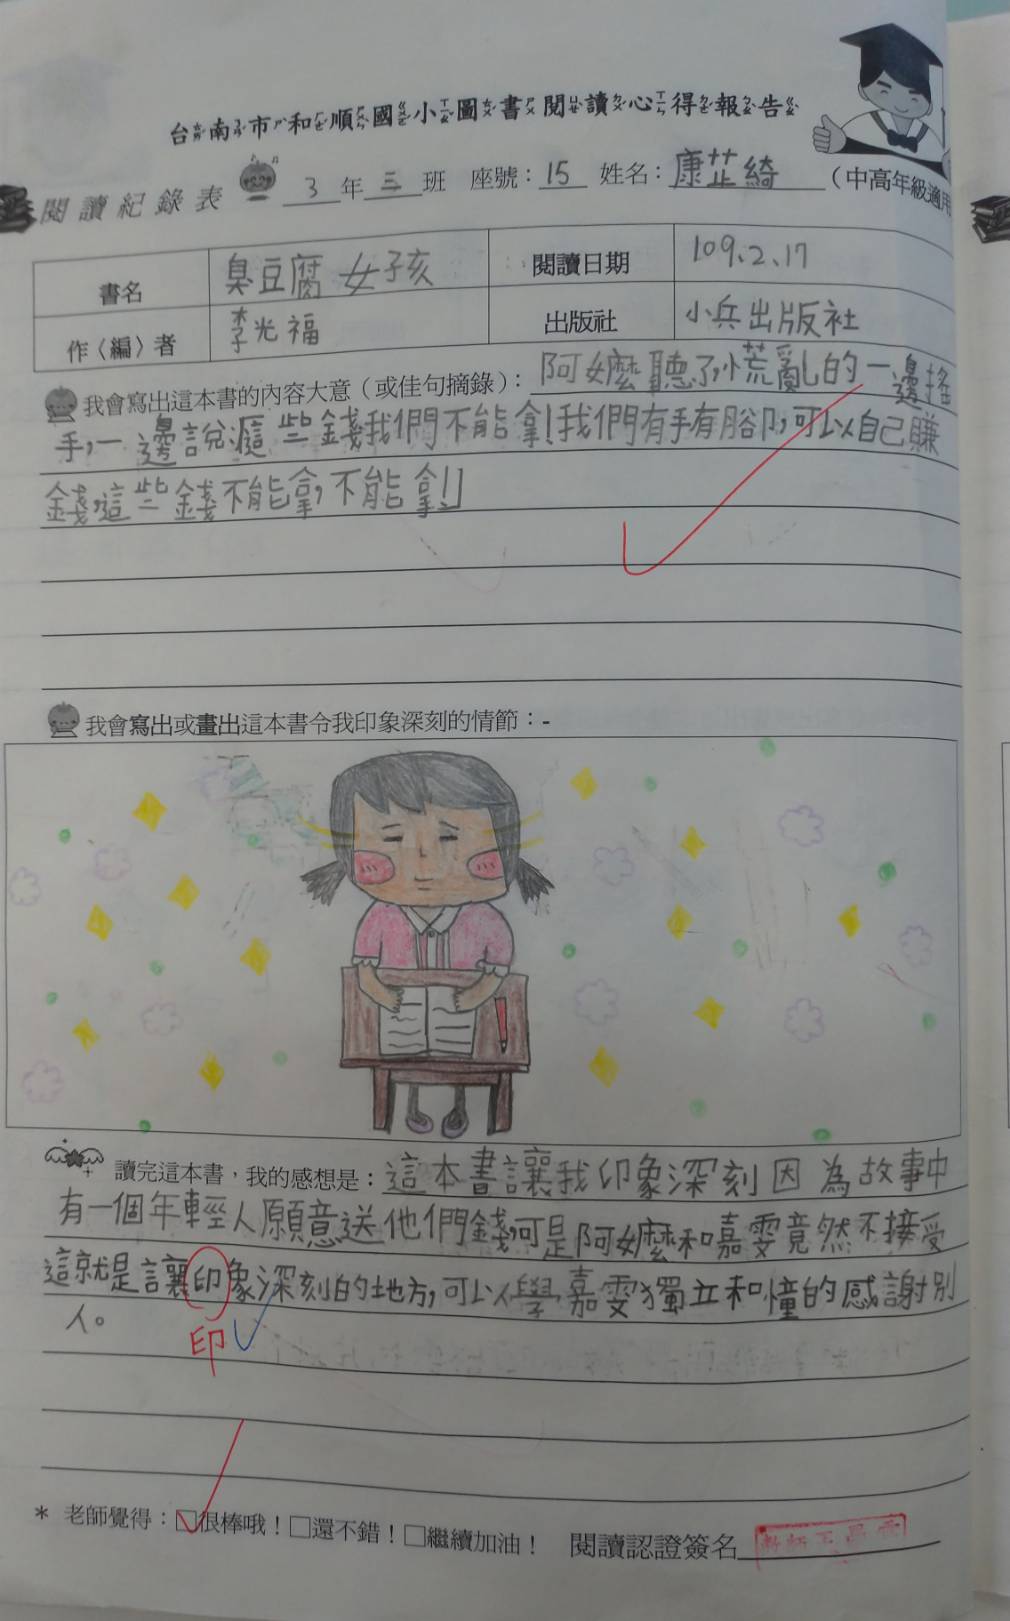 台南市和順國小圖書閱讀心得報告
閱讀紀錄表 3年三班 座號：15 姓名：康芷綺（中高年級適用
書名 臭豆腐女孩 閱讀日期 109、2、17
作〈編〉者 李光福 出版社 小兵出版社
我會寫出這本書的內容大意（或佳句摘錄）：阿嬤聽了,慌亂的一邊搖
手,一邊說:這些錢我們不能拿!我們有手有腳,可以自己賺
錢,這些錢不能拿,不能拿!」
我會寫出或畫出這本書令我印象深刻的情節：-
讀完這本書，我的感想是：這本書讓我印象深刻因為故事中
有一個年輕人願意送他們錢,可是阿嬤和嘉雯竟然不接受
這就是讓印象深刻的地方,可以學嘉雯獨立和懂的感謝別
人。
印
* 老師覺得：□很棒哦！□還不錯！□繼續加油！ 閱讀認證簽名